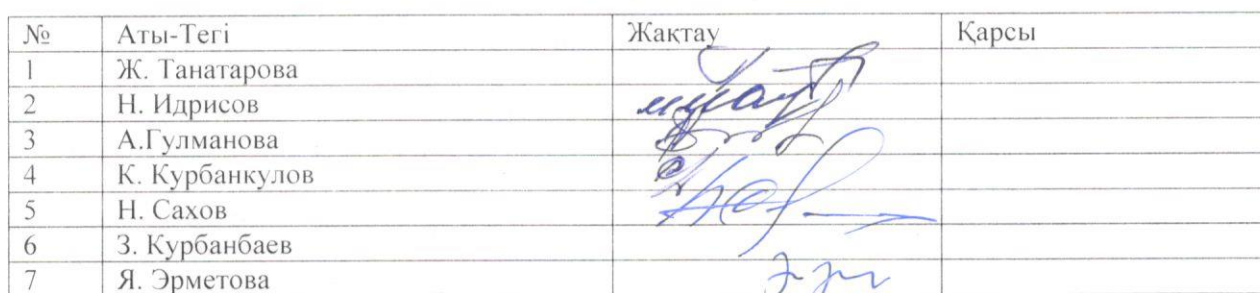 № Аты-Тегі Жақтау Қарсы
1 Ж. Танатарова
2 Н. Идрисов
3 А.Гулманова
4 К. Курбанкулов
5 Н. Сахов
6 З. Курбанбаев
7 Я. Эрметова